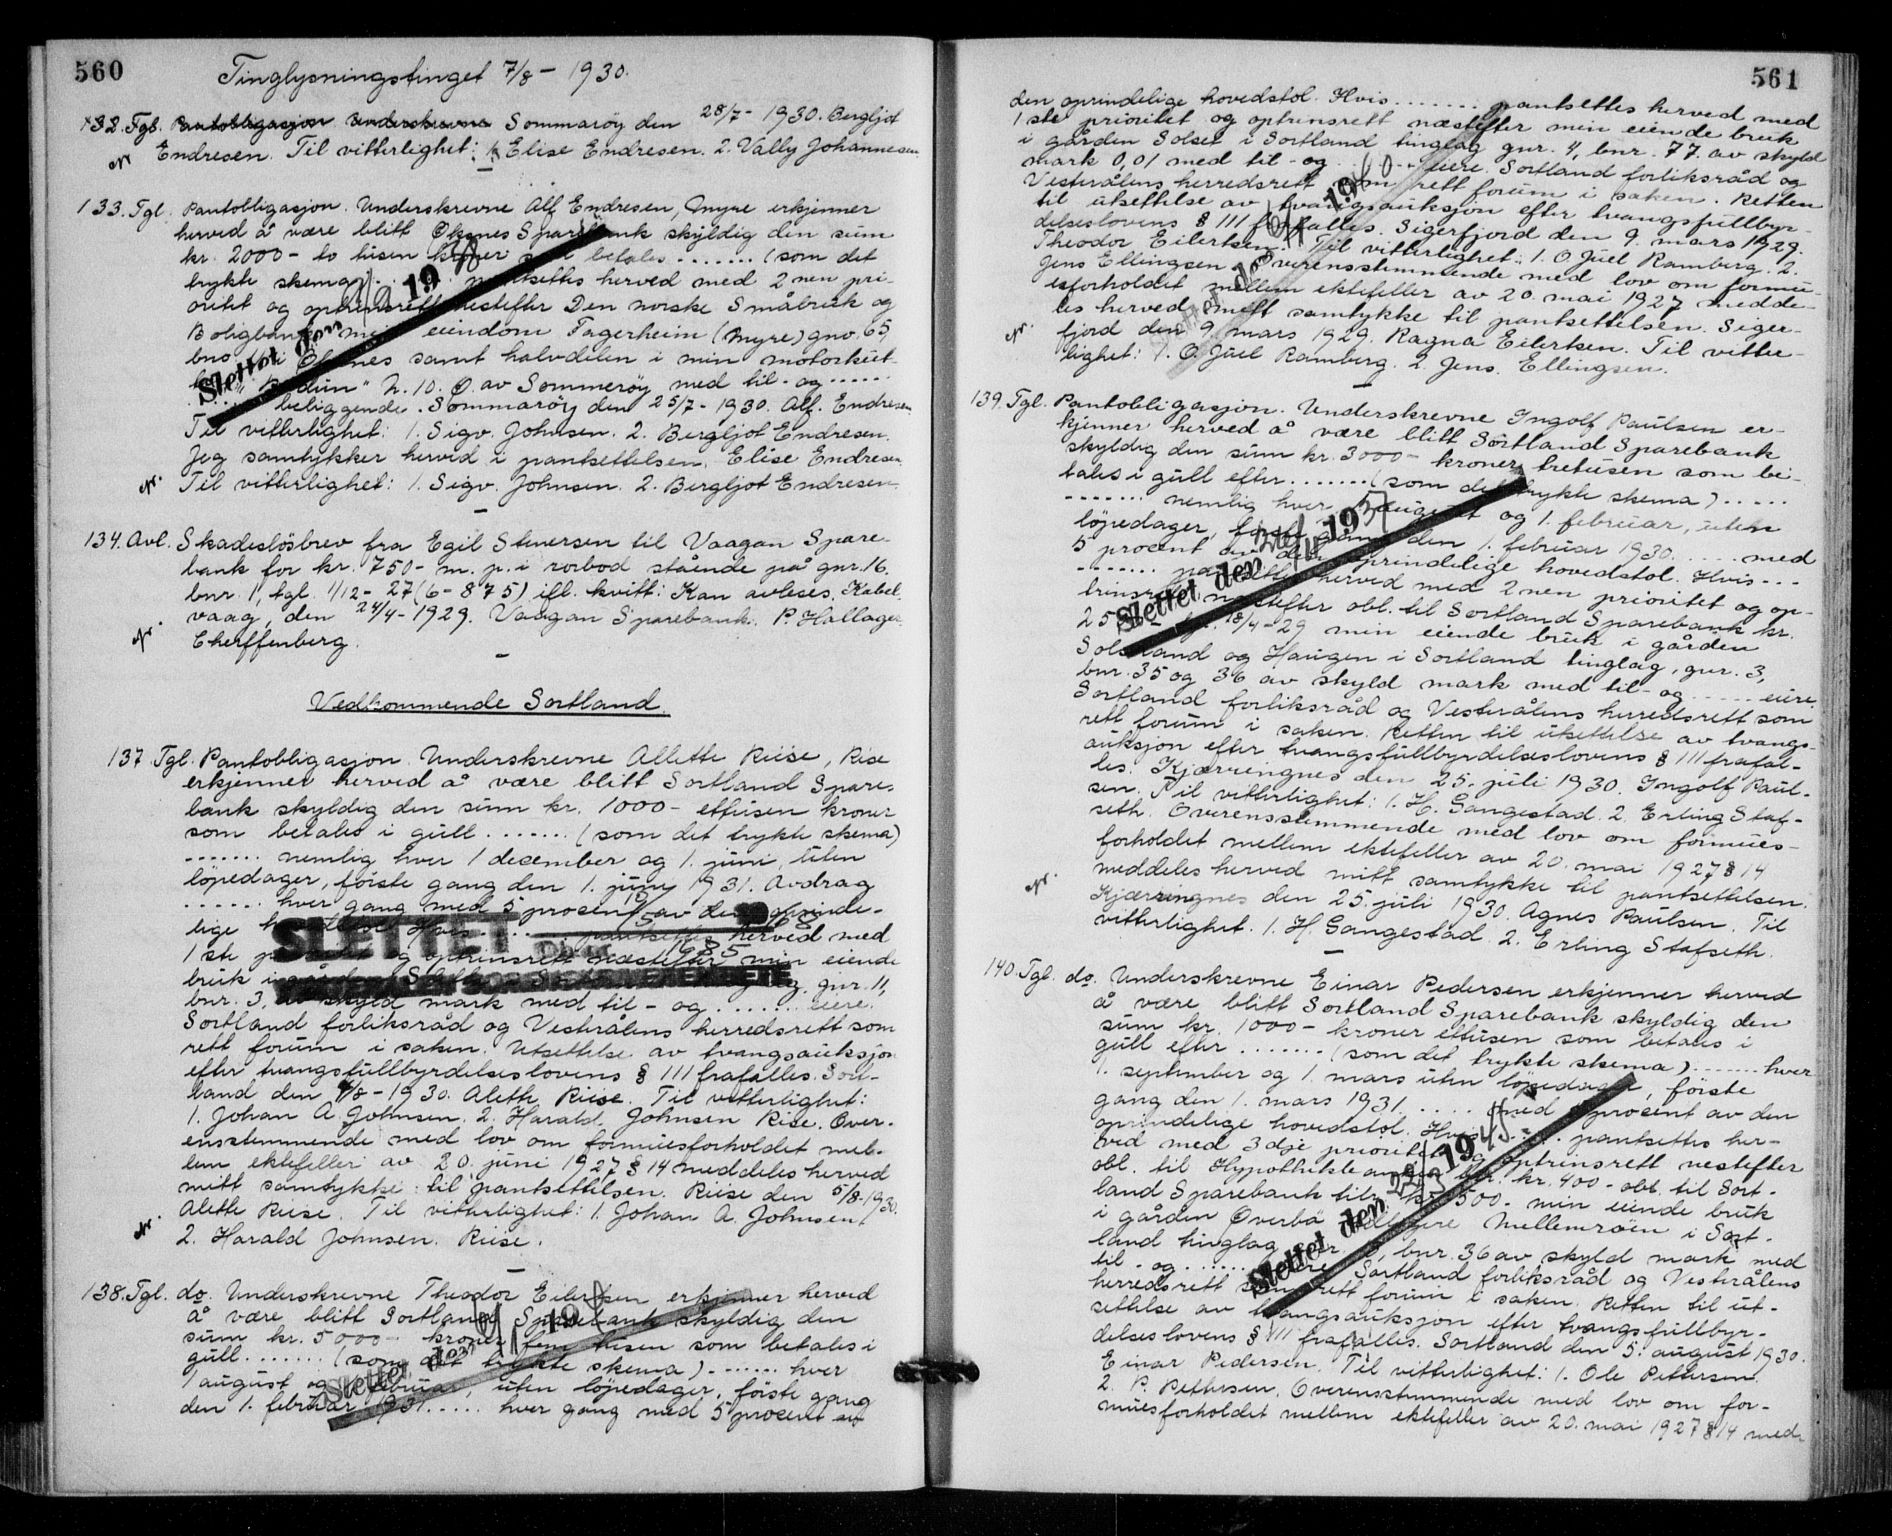 560
Tinglysningstinget 7/8 - 1930.
132. Tgl. Pantobligasjon Underskrevne Sommarøy den 28/7 - 1930. Bergljot
Endresen. Til vitterlighet: 1. Elise Endresen. 2. Vally Johannesen.
133. Tgl. Pantobligasjon. Underskrevne Alf Endresen, Myre erkjenner
herved å være blitt Øksnes Sparebank skyldig den sum
kr. 2000 - to tusen kroner som betales ....... (som det
trykte skema) ....... pantsettes herved med 2nen pri-
oritet og optrinsrett nestefter Den norske Småbruk og
Boligbank min eiendom Fagerheim (Myre) gnr. 65
bnr. i Øksnes samt halvdelen i min motorskøit
N. 10. Ø. av Sommerøy med til - og ......
beliggende. Sommarøy den 25/7 - 1930. Alf. Endresen
Til vitterlighet: 1. Sigv. Johnsen. 2. Bergljot Endresen.
Jeg samtykker herved i pantsettelsen. Elise Endresen.
Til vitterlighet: 1. Sigv. Johnsen. 2. Bergljot Endresen.
Slettet den 19
134. Avl. Skadesløsbrev fra Egil Stenersen til Vaagan Spare-
bank for kr. 750 - m. p. i rorbod stående på gnr. 16.
bnr. 1, tgl. 1/12 - 27 (6 - 875) ifl. kvitt: Kan avleses. Kabel-
vaag, den 24/4 - 1929. Vaagan Sparebank. P. Hallager
Cherffenberg.
Vedkommende Sortland.
137 Tgl. Pantobligasjon. Underskrevne Allette Riise, Rise
erkjenner herved å være blitt Sortland Spare-
bank skyldig den sum kr. 1000 - ettusen kroner
som betales i gull ....... (som det trykte skema)
....... nemlig hver 1 december og 1. juni, uten
løpedager, første gang den 1. juni 1931. Avdrag
....... hver gang med 5 procent av den oprinde-
lige hovedstol. Hvis ....... pantsettes herved med
1ste prioritet og optrinsrett næstefter min eiende
bruk i gården gnr. 11,
bnr. 3, av skyld mark med til - og ....... eiere.
Sortland forliksråd og Vesterålens herredsrett som
rett forum i saken. Utsettelse av tvangsauksjon
efter tvangsfullbyrdelseslovens § 111 frafalles. Sort-
land den 4/8 - 1930. Aleth Riise. Til vitterlighet:
1. Johan A. Johnsen. 2. Harald Johnsen Rise. Over-
ensstemmende med lov om formuesforholdet mel-
lem ektefeller av 20. juni 1927 § 14 meddeles herved
mitt samtykke til pantsettelsen. Riise den 5/8 - 1930.
Aleth Riise. Til vitterlighet: 1. Johan A. Johnsen.
2. Harald Johnsen. Riise.
SLETTET
138. Tgl. do. Underskrevne Theodor Eilertsen erkjenner herved
å være blitt Sortland Sparebank skyldig den
sum kr. 5000 - kroner fem tusen som betales i
gull ....... (som det trykte skema) ....... hver
1 august og 1 februar, uten løpedager, første gang
den 1. februar 1931 ..... hver gang med 5 procent av
Slettet den 19
561
den oprindelige hovedstol. Hvis ....... pantsettes herved med
1ste prioritet og optrinsrett næstefter min eiende bruk
i gården Solset i Sortland tinglag gnr. 4, bnr. 77. av skyld
mark 0,01 med til - og ....... eiere. Sortland forliksråd og
Vesterålens herredsrett som rett forum i saken. Retten
til utsettelse av tvangsauksjon efter tvangsfullbyr-
delseslovens § 111 frafalles. Sigerfjord den 9. mars 1929.
Theodor Eilertsen. Til vitterlighet: 1. O. Juel Ramberg. 2.
Jens Ellingsen. Overensstemmende med lov om formu-
esforholdet mellem ektefeller av 20. mai 1927 medde-
les herved mitt samtykke til pantsettelsen. Siger-
fjord den 9 mars 1929. Ragna Eilertsen. Til vitter-
lighet: 1. O. Juel Ramberg. 2. Jens. Ellingsen.
Slettet den 1960
139. Tgl. Pantobligasjon. Underskrevne Ingolf Paulsen er-
kjenner herved å være blitt Sortland Sparebank
skyldig den sum kr. 3000 - kroner tretusen som be-
tales i gull efter ....... (som det trykte skema) .....
....... nemlig hver 1 august og 1. februar, uten
løpedager, første gang den 1. februar 1930. .... med
5 procent av den oprindelige hovedstol. Hvis ...
....... pantsettes herved med 2nen prioritet og op-
trinsrett næstefter obl. til Sortland Sparebank kr.
25 tgl. 18/4 - 29 min eiende bruk i gården
Solstrand og Haugen i Sortland tinglag, gnr. 3,
bnr. 35 og 36 av skyld mark med til - og ..... eiere.
Sortland forliksråd og Vesterålens herredsrett som
rett forum i saken. Retten til utsettelse av tvangs-
auksjon efter tvangsfullbyrdelseslovens § 111 frafal-
les. Kjærringnes den 25. juli 1930. Ingolf Paul-
sen. Til vitterlighet: 1. H. Gangestad. 2. Erling Staf-
seth. Overensstemmende med lov om formues-
forholdet mellem ektefeller av 20. mai 1927 § 14
meddeles herved mitt samtykke til pantsettelsen.
Kjærringnes den 25. juli 1930. Agnes Paulsen. Til
vitterlighet. 1. H. Gangestad. 2. Erling Stafseth.
Slettet den 1957
140. Tgl. do. Underskrevne Einar Pedersen erkjenner herved
å være blitt Sortland Sparebank skyldig den
sum kr. 1000 - kroner ettusen som betales i
gull efter ....... (som det trykte skema) ....... hver
1. september og 1. mars uten løpedager, første
gang den 1. mars 1931. .... med procent av den
oprindelige hovedstol. Hvis ..... pantsettes her-
ved med 3dje prioritet og optrinsrett nestefter
obl. til Hypothekbanken kr. 400 - obl. til Sort-
land Sparebank kr. 500 - min eiende bruk
i gården Øverbø Mellemrøen i Sort-
land tinglag gnr. bnr. 36 av skyld mark med
til - og ....... eiere. Sortland forliksråd og Vesterålens
herredsrett som rett forum i saken. Retten til ut-
settelse av tvangsauksjon efter tvangsfullbyr-
delseslovens § 111 frafalles. Sortland den 5. august 1930.
Einar Pedersen. Til vitterlighet: 1. Ole Pettersen.
2. P. Pettersen. Overensstemmende med lov om for-
muesforholdet mellem ektefeller av 20. mai 1927 § 14 med-
Slettet den 22/3 1945